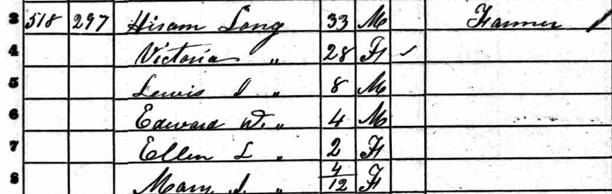 3 518 297 Hiram Long 33 M Farmer /
4 Victoria " 28 F ✓
5 Lewis " 8 M
6 Edward W. " 4 M
7 Ellen L " 2 F
8 Mary " 4/12 F